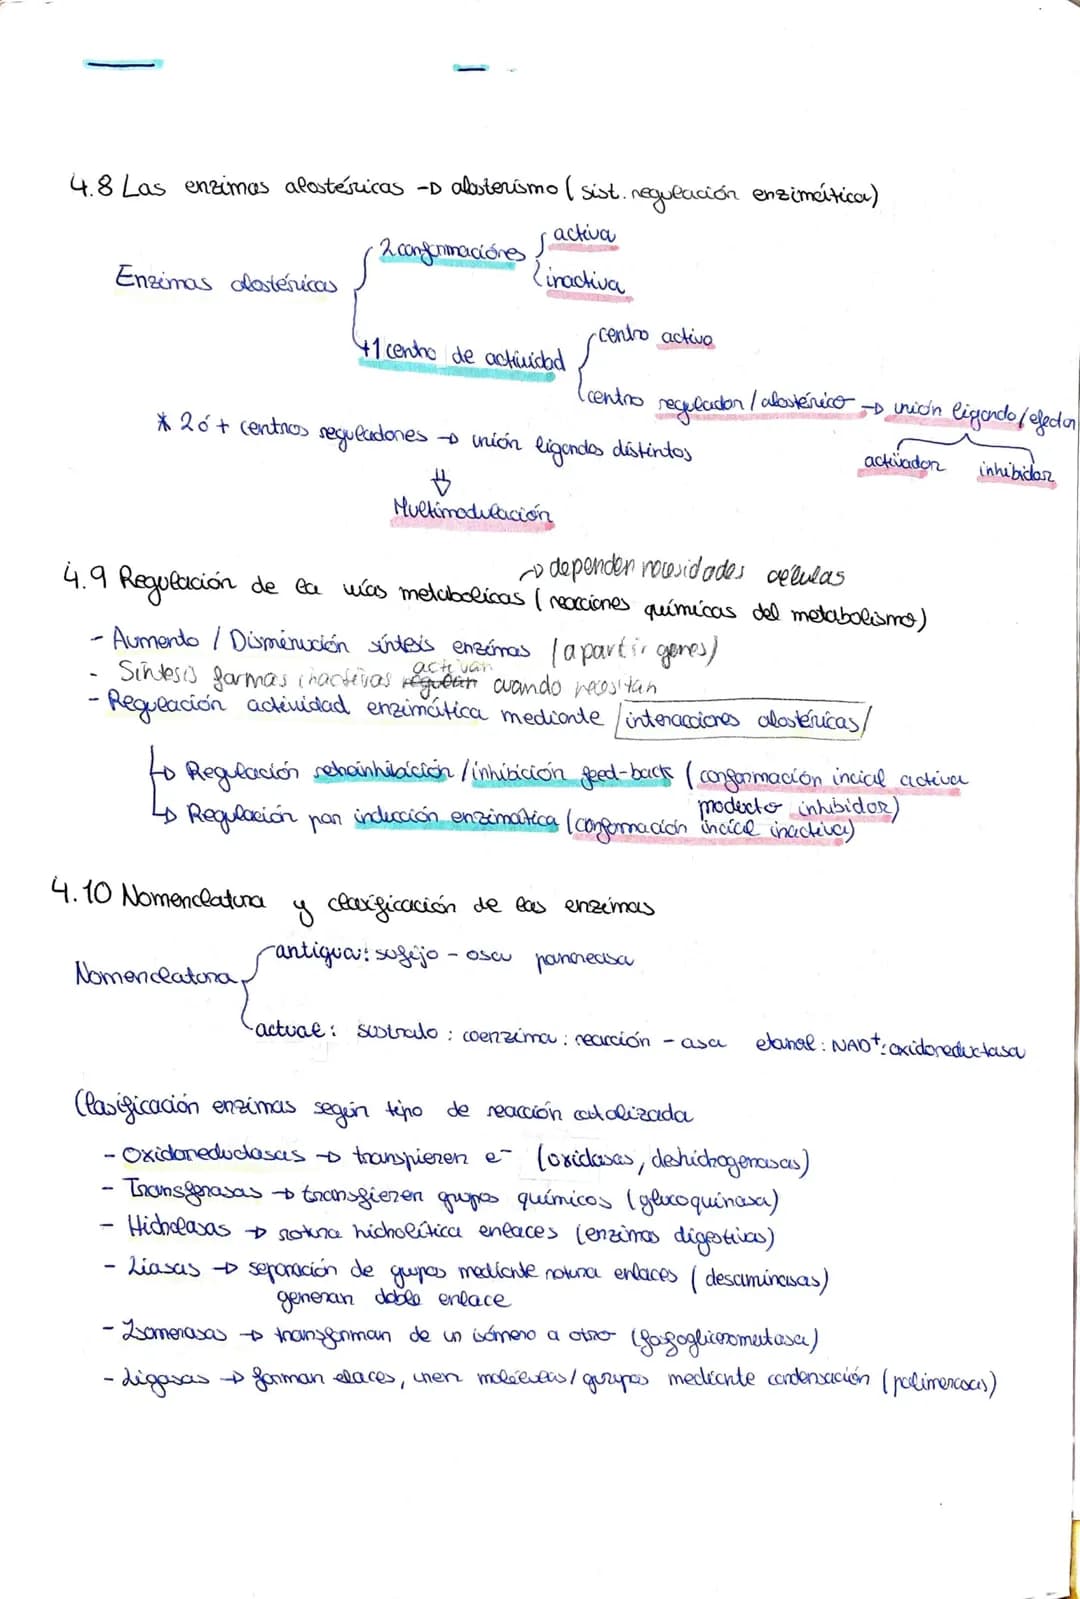 4.8 Las enzimas alostéricas → alosterismo (sist. regulación enzimática)
Enzimas alostéricas
2 conformaciónes
activa
inactiva
+1 centro de actividad
centro activo
centro regulador / alostérico → unión ligando/efector
activador inhibidor
* 2 ó + centros reguladores → unión ligandos distintos
⇓
Multimodulación
→ dependen necesidades células
4.9 Regulación de la vías metabolicas (reacciones químicas del metabolismo)
- Aumento / Disminución síntesis enzimas (a partir genes)
activan
- Síntesis formas inactivas regulan cuando necesitan
- Regulación actividad enzimática mediante interacciones alostéricas/
↳ Regulación retroinhibición / inhibición feed-back (conformación incial activa
producto inhibidor)
↳ Regulación por inducción enzimática (conformación incial inactiva)
4.10 Nomenclatura y clasificación de las enzimas
Nomenclatura
antigua: sufijo - asa pancreasa
actual: sustrato : coenzima : reacción - asa etanol : NAD⁺: oxidoreductasa
Clasificación enzimas según tipo de reacción catalizada
- Oxidoreductasas → transfieren e⁻ (oxidasas, deshidrogenasas)
- Transferasas → transfieren grupos químicos (glucoquinasa)
- Hidrolasas → rotura hidrolítica enlaces (enzimas digestivas)
- Liasas → separación de grupos mediante rotura enlaces (desaminasas)
generan doble enlace
- Isomerasas → transforman de un isómero a otro (fosfogliceromutasa)
- Ligasas → forman elaces, unen moléculas/ grupos mediante condensación (polimerasas)